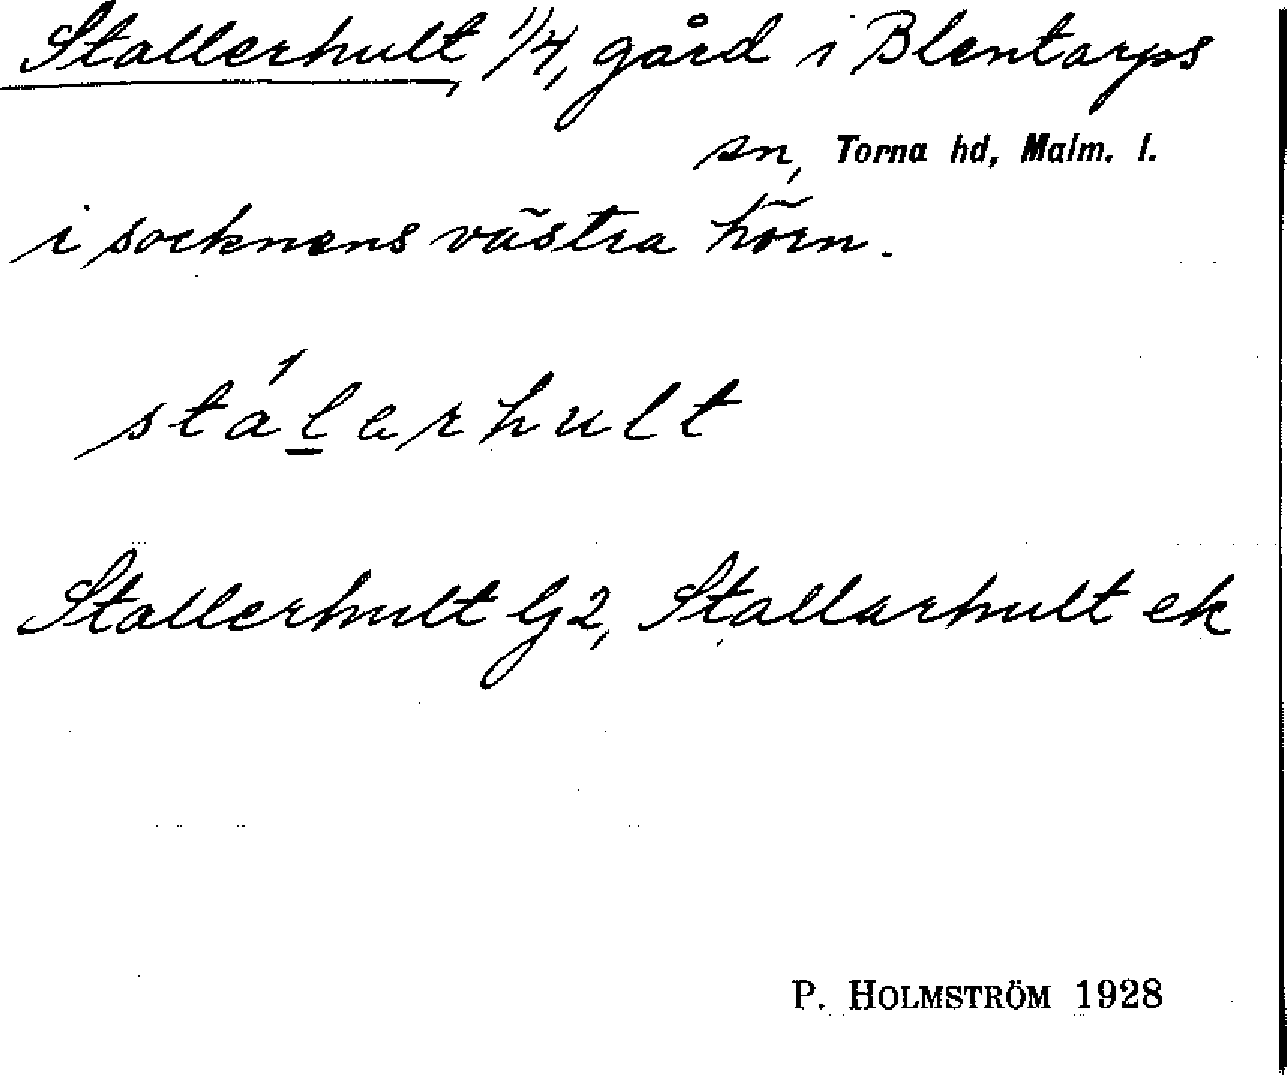 Stallerhult 1/4, gård i Blentarps
sn, Torna hd, Malm. l.
i socknens västra hörn.
stálerhult
Stallerhult lj2, Stallarhult ek
P. HOLMSTRÖM 1928